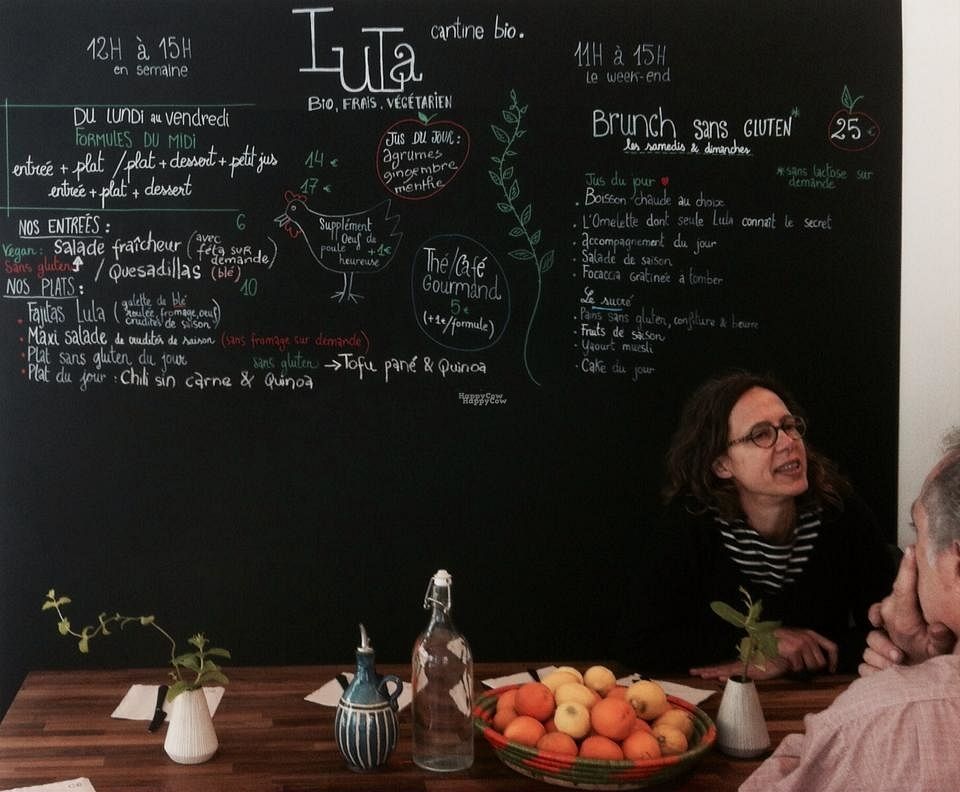 12H à 15H
en semaine
LuLa
cantine bio.
BiO, FRAiS, VÉGÉTARiEN
11H à 15H
Le week-end
DU LUNDi au Vendredi
FORMULES DU MiDi
entrée + plat / plat + dessert + petit jus
14 €
entrée + plat + dessert
17 €
JUS DU JOUR :
agrumes
gingembre
menthe
Brunch sans GLUTEN*
les samedis & dimanches
25 €
*sans lactose sur
demande
NOS ENTRÉES :
6
Vegan : Salade fraîcheur (avec
feta sur
demande)
Sans gluten / Quesadillas (blé)
NOS PLATS :
10
Fajitas Lula (galette de blé
roulée, fromage, oeuf
crudités de saison)
Maxi salade de crudités de saison (sans fromage sur demande)
Plat sans gluten du jour
sans gluten → Tofu pané & Quinoa
Plat du jour : Chili sin carne & Quinoa
Supplément
1 Oeuf de
poule +1€
heureuse
Thé/Café
Gourmand
5 €
(+1€/formule)
Jus du jour
Boisson chaude au choix
L'Omelette dont seule Lula connaît le secret
accompagnement du jour
Salade de saison
Focaccia Gratinée à tomber
Le sucré
Pains sans gluten, confiture & beurre
Fruits de saison
Yaourt muesli
Cake du jour
HappyCow
HappyCow